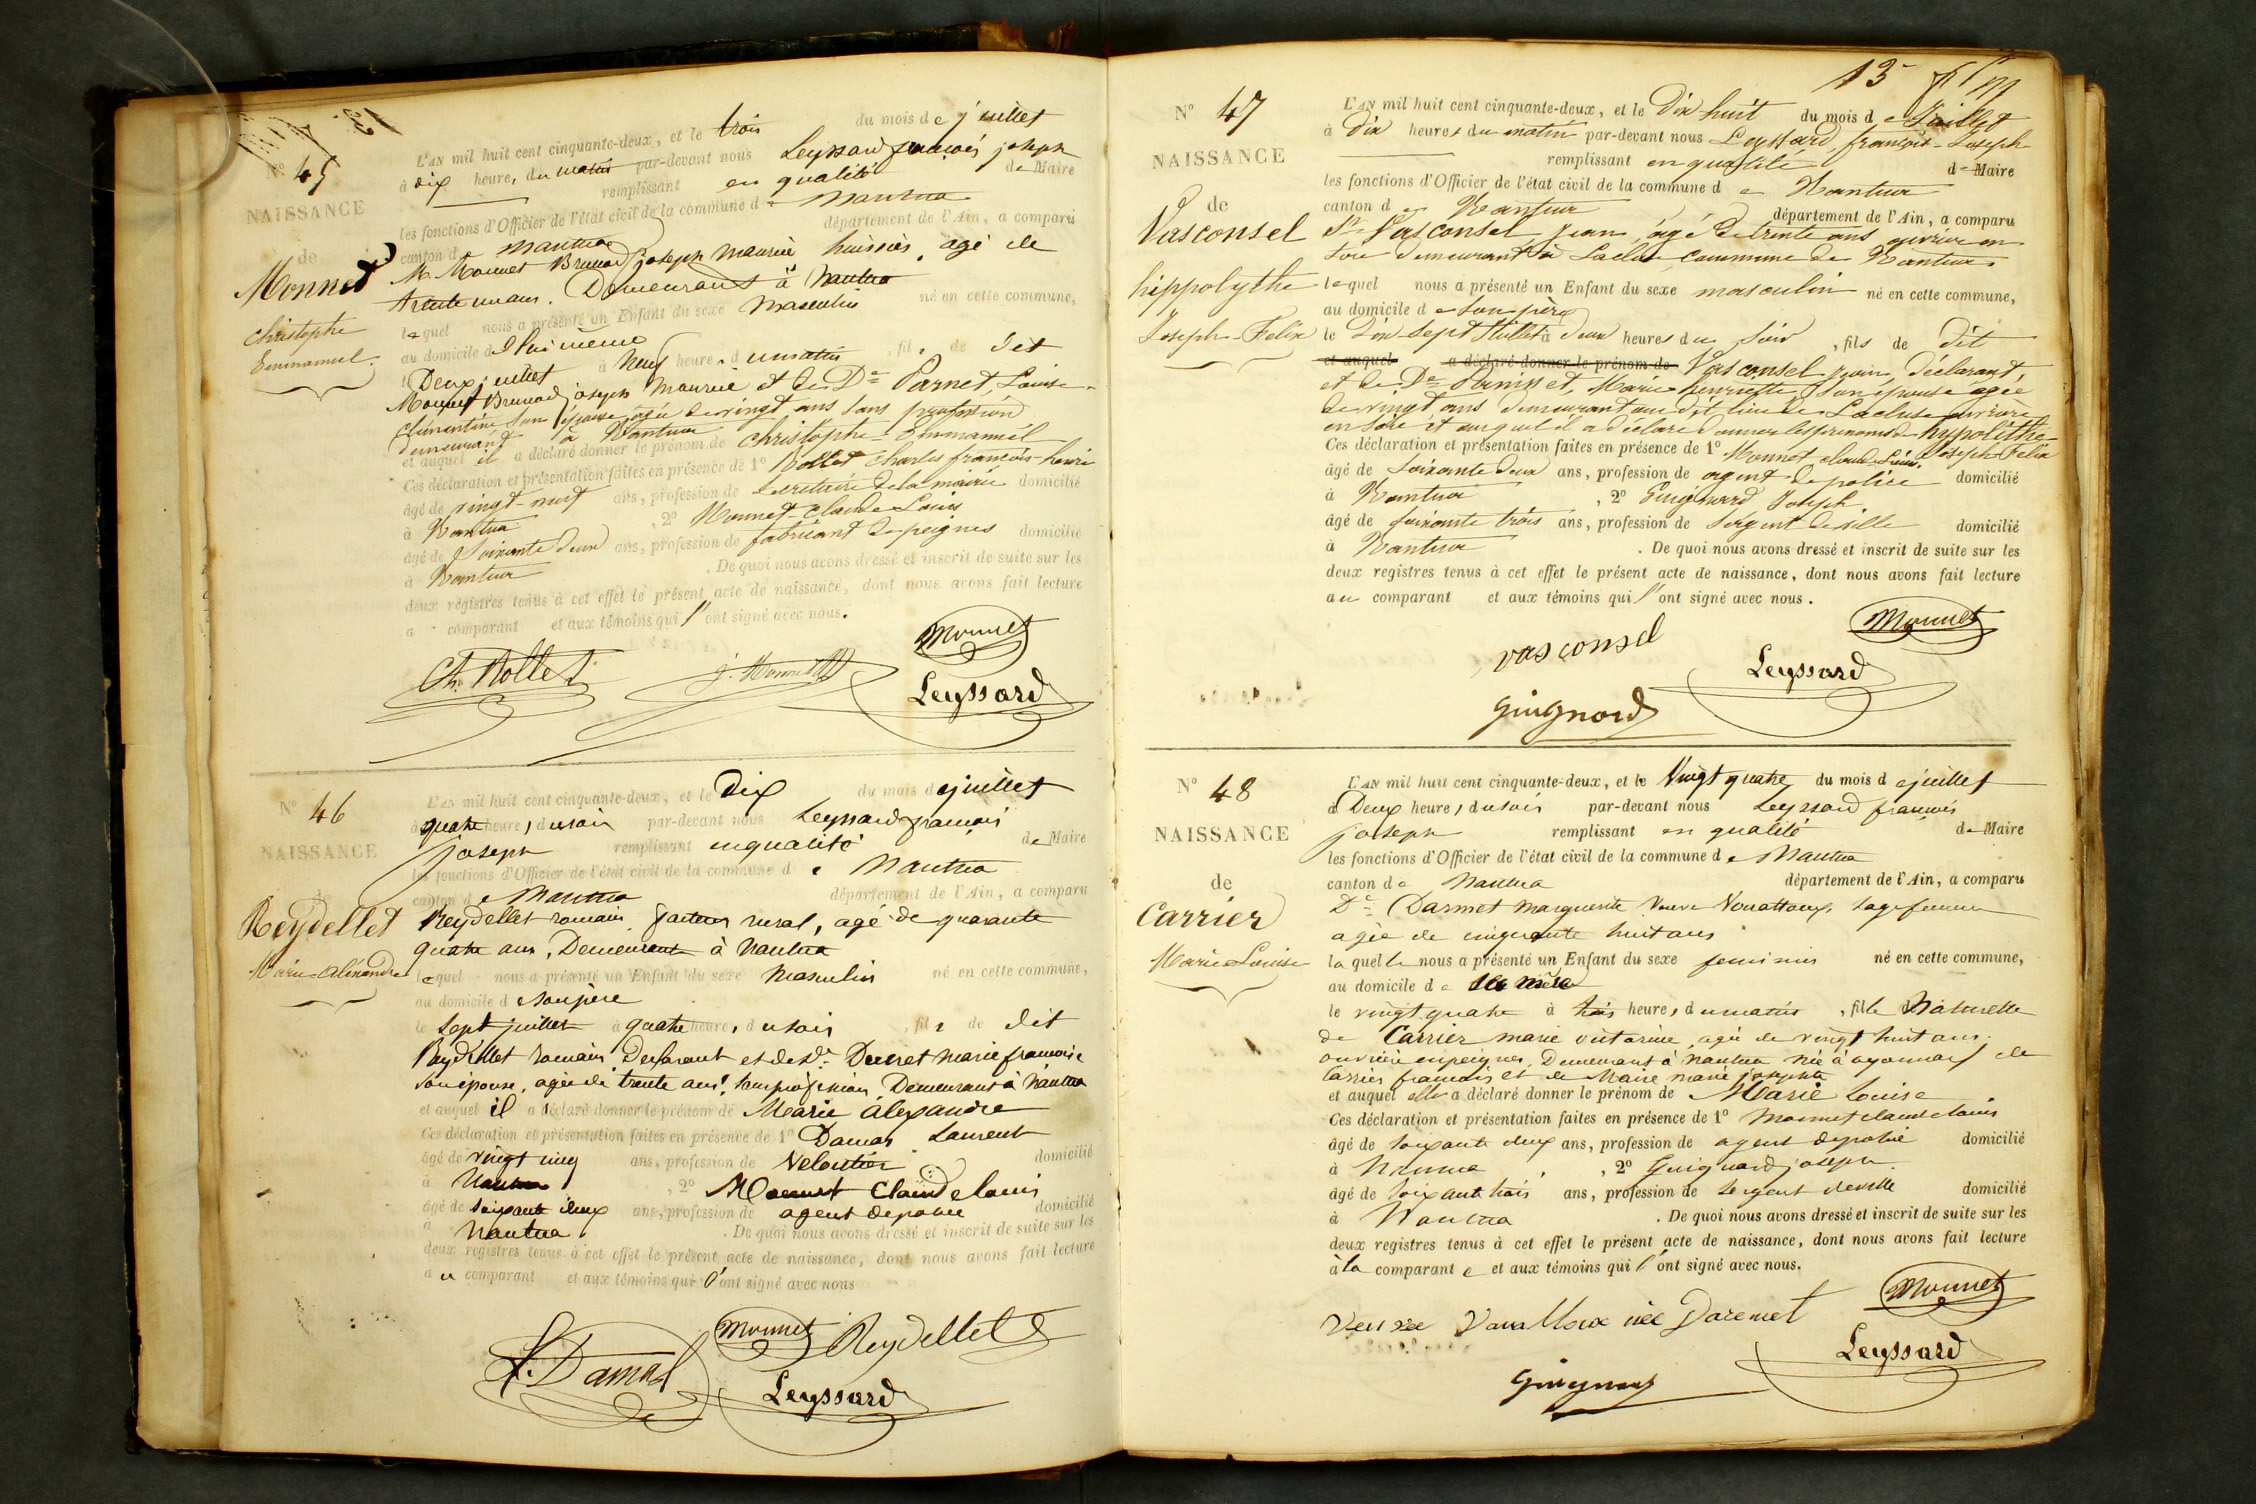 N° 45
NAISSANCE
de
Monnet
Christophe
Emmanuel.
L'AN mil huit cent cinquante-deux, et le trois du mois de juillet
à dix heure, du matin par-devant nous Leyssard françois joseph
remplissant en qualité de Maire
les fonctions d'Officier de l'état civil de la commune de Nantua
canton de Nantua département de l'Ain, a comparu
M. Monnet Brunod joseph Maurice huissier, agé de
trente un ans. Demeurant à Nantua
lequel nous a présenté un Enfant du sexe Masculin né en cette commune,
au domicile de lui même
le Deux juillet à Neuf heure, du matin, fils de dit
Monnet Brunod joseph Maurice et de De Parnet, Louise
Clémentine son épouse, agée de vingt ans sans profession
demeurant à Nantua
et auquel il a déclaré donner le prénom de Christophe-Emmanuel
Ces déclaration et présentation faites en présence de 1° Rollet Charles françois-henri
âgé de vingt-neuf ans, profession de Secrétaire de la mairie domicilié
à Nantua , 2° Monnet Claude Louis
âgé de Soixante deux ans, profession de fabricant de peignes domicilié
à Nantua . De quoi nous avons dressé et inscrit de suite sur les
deux registres tenus à cet effet le présent acte de naissance, dont nous avons fait lecture
a comparant et aux témoins qui l'ont signé avec nous.
Monnet
Ch. Rollet J. Monnet
Leyssard
N° 46
NAISSANCE
de
Reydellet
Marie-Alexandre
L'AN mil huit cent cinquante-deux, et le Dix du mois de juillet
à quatre heure, du soir par-devant nous Leyssard françois
joseph remplissant en qualité de Maire
les fonctions d'Officier de l'état civil de la commune de Nantua
canton de Nantua département de l'Ain, a comparu
Reydellet romain facteur rural, agé de quarante
quatre ans, Demeurant à Nantua
lequel nous a présenté un Enfant du sexe Masculin né en cette commune,
au domicile de son père
le Sept juillet à quatre heure, du soir, fils de dit
Reydellet romain Declarant et de De Ducret Marie francoise
son épouse, agée de trente ans, sans profession Demeurant à Nantua
et auquel il a déclaré donner le prénom de Marie alexandre
Ces déclaration et présentation faites en présence de 1° Damas Laurent
âgé de vingt cinq ans, profession de domicilié
à Nantua , 2° Monnet Claude louis
âgé de soixante deux ans, profession de agent de police domicilié
à Nantua . De quoi nous avons dressé et inscrit de suite sur les
deux registres tenus à cet effet le présent acte de naissance, dont nous avons fait lecture
au comparant et aux témoins qui l'ont signé avec nous
Monnet Reydellet
L. Damas
Leyssard
13
N° 47
NAISSANCE
de
Vasconsel
hippolythe
Joseph-Félix
L'AN mil huit cent cinquante-deux, et le Dix huit du mois de Juillet
à Dix heures du matin par-devant nous Leyssard, françois-Joseph
remplissant en qualité de Maire
les fonctions d'Officier de l'état civil de la commune de Nantua
canton de Nantua département de l'Ain, a comparu
Sr Vasconsel jean, âgé de trente ans ouvrier en
soie demeurant à Lacluse, commune de Nantua
lequel nous a présenté un Enfant du sexe masculin né en cette commune,
au domicile de son père
le Dix sept Juillet à deux heures du soir , fils de dit
et auquel a déclaré donner le prénom de Vasconsel jean, déclarant,
et de De Marie henriette son épouse âgée
de vingt ans demeurant au dit lieu de Lacluse ouvrière
en soie et auquel il a déclaré donner les prénoms de hypolithe-
Joseph-Félix
Ces déclaration et présentation faites en présence de 1° Monnet Claude-Louis.
âgé de soixante deux ans, profession de agent de police domicilié
à Nantua , 2° Guignard Joseph
âgé de soixante trois ans, profession de Sergent de ville domicilié
à Nantua . De quoi nous avons dressé et inscrit de suite sur les
deux registres tenus à cet effet le présent acte de naissance, dont nous avons fait lecture
au comparant et aux témoins qui l'ont signé avec nous.
Monnet
vasconsel
Leyssard
Guignard
N° 48
NAISSANCE
de
Carrier
Marie-Louise
L'AN mil huit cent cinquante-deux, et le Vingt quatre du mois de juillet
à Deux heure, du soir par-devant nous Leyssard françois
joseph remplissant en qualité de Maire
les fonctions d'Officier de l'état civil de la commune de Nantua
canton de Nantua département de l'Ain, a comparu
De Darmet Marguerite Veuve sage femme
agée de cinquante huit ans
laquelle nous a présenté un Enfant du sexe feminin né en cette commune,
au domicile de sa mère
le vingt quatre à trois heure, du matin, fille Naturelle
de Carrier marie victorine, agée de vingt huit ans.
ouvrière en peignes, Demeurant à Nantua née à oyonnax de
Carrier francois et de Maire marie josephte
et auquel elle a déclaré donner le prénom de Marie Louise
Ces déclaration et présentation faites en présence de 1° Monnet claude louis
âgé de soixante deux ans, profession de agent de police domicilié
à Nantua , 2° Guignard joseph
âgé de soixante trois ans, profession de sergent de ville domicilié
à Nantua . De quoi nous avons dressé et inscrit de suite sur les
deux registres tenus à cet effet le présent acte de naissance, dont nous avons fait lecture
à la comparante et aux témoins qui l'ont signé avec nous.
Monnet
née Daremet
Leyssard
Guignard